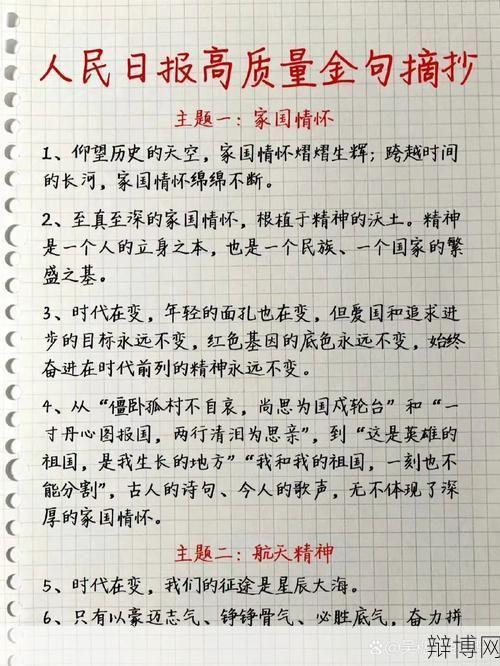 人民日报高质量金句摘抄
主题一：家国情怀
1、仰望历史的天空，家国情怀熠熠生辉；跨越时间
的长河，家国情怀绵绵不断。
2、至真至深的家国情怀，根植于精神的沃土。精神
是一个人的立身之本，也是一个民族、一个国家的繁
盛之基。
3、时代在变，年轻的面孔也在变，但爱国和追求进
步的目标永远不变，红色基因的底色永远不变，始终
奋进在时代前列的精神永远不变。
4、从“僵卧孤村不自哀，尚思为国戍轮台”和“一
寸丹心图报国，两行清泪为思亲”，到“这是英雄的
祖国，是我生长的地方”“我和我的祖国，一刻也不
能分割”，古人的诗句、今人的歌声，无不体现了深
厚的家国情怀。
主题二：航天精神
5、时代在变，我们的征途是星辰大海。
6、只有以豪迈志气、铮铮骨气、必胜底气，奋力拼
辩博网